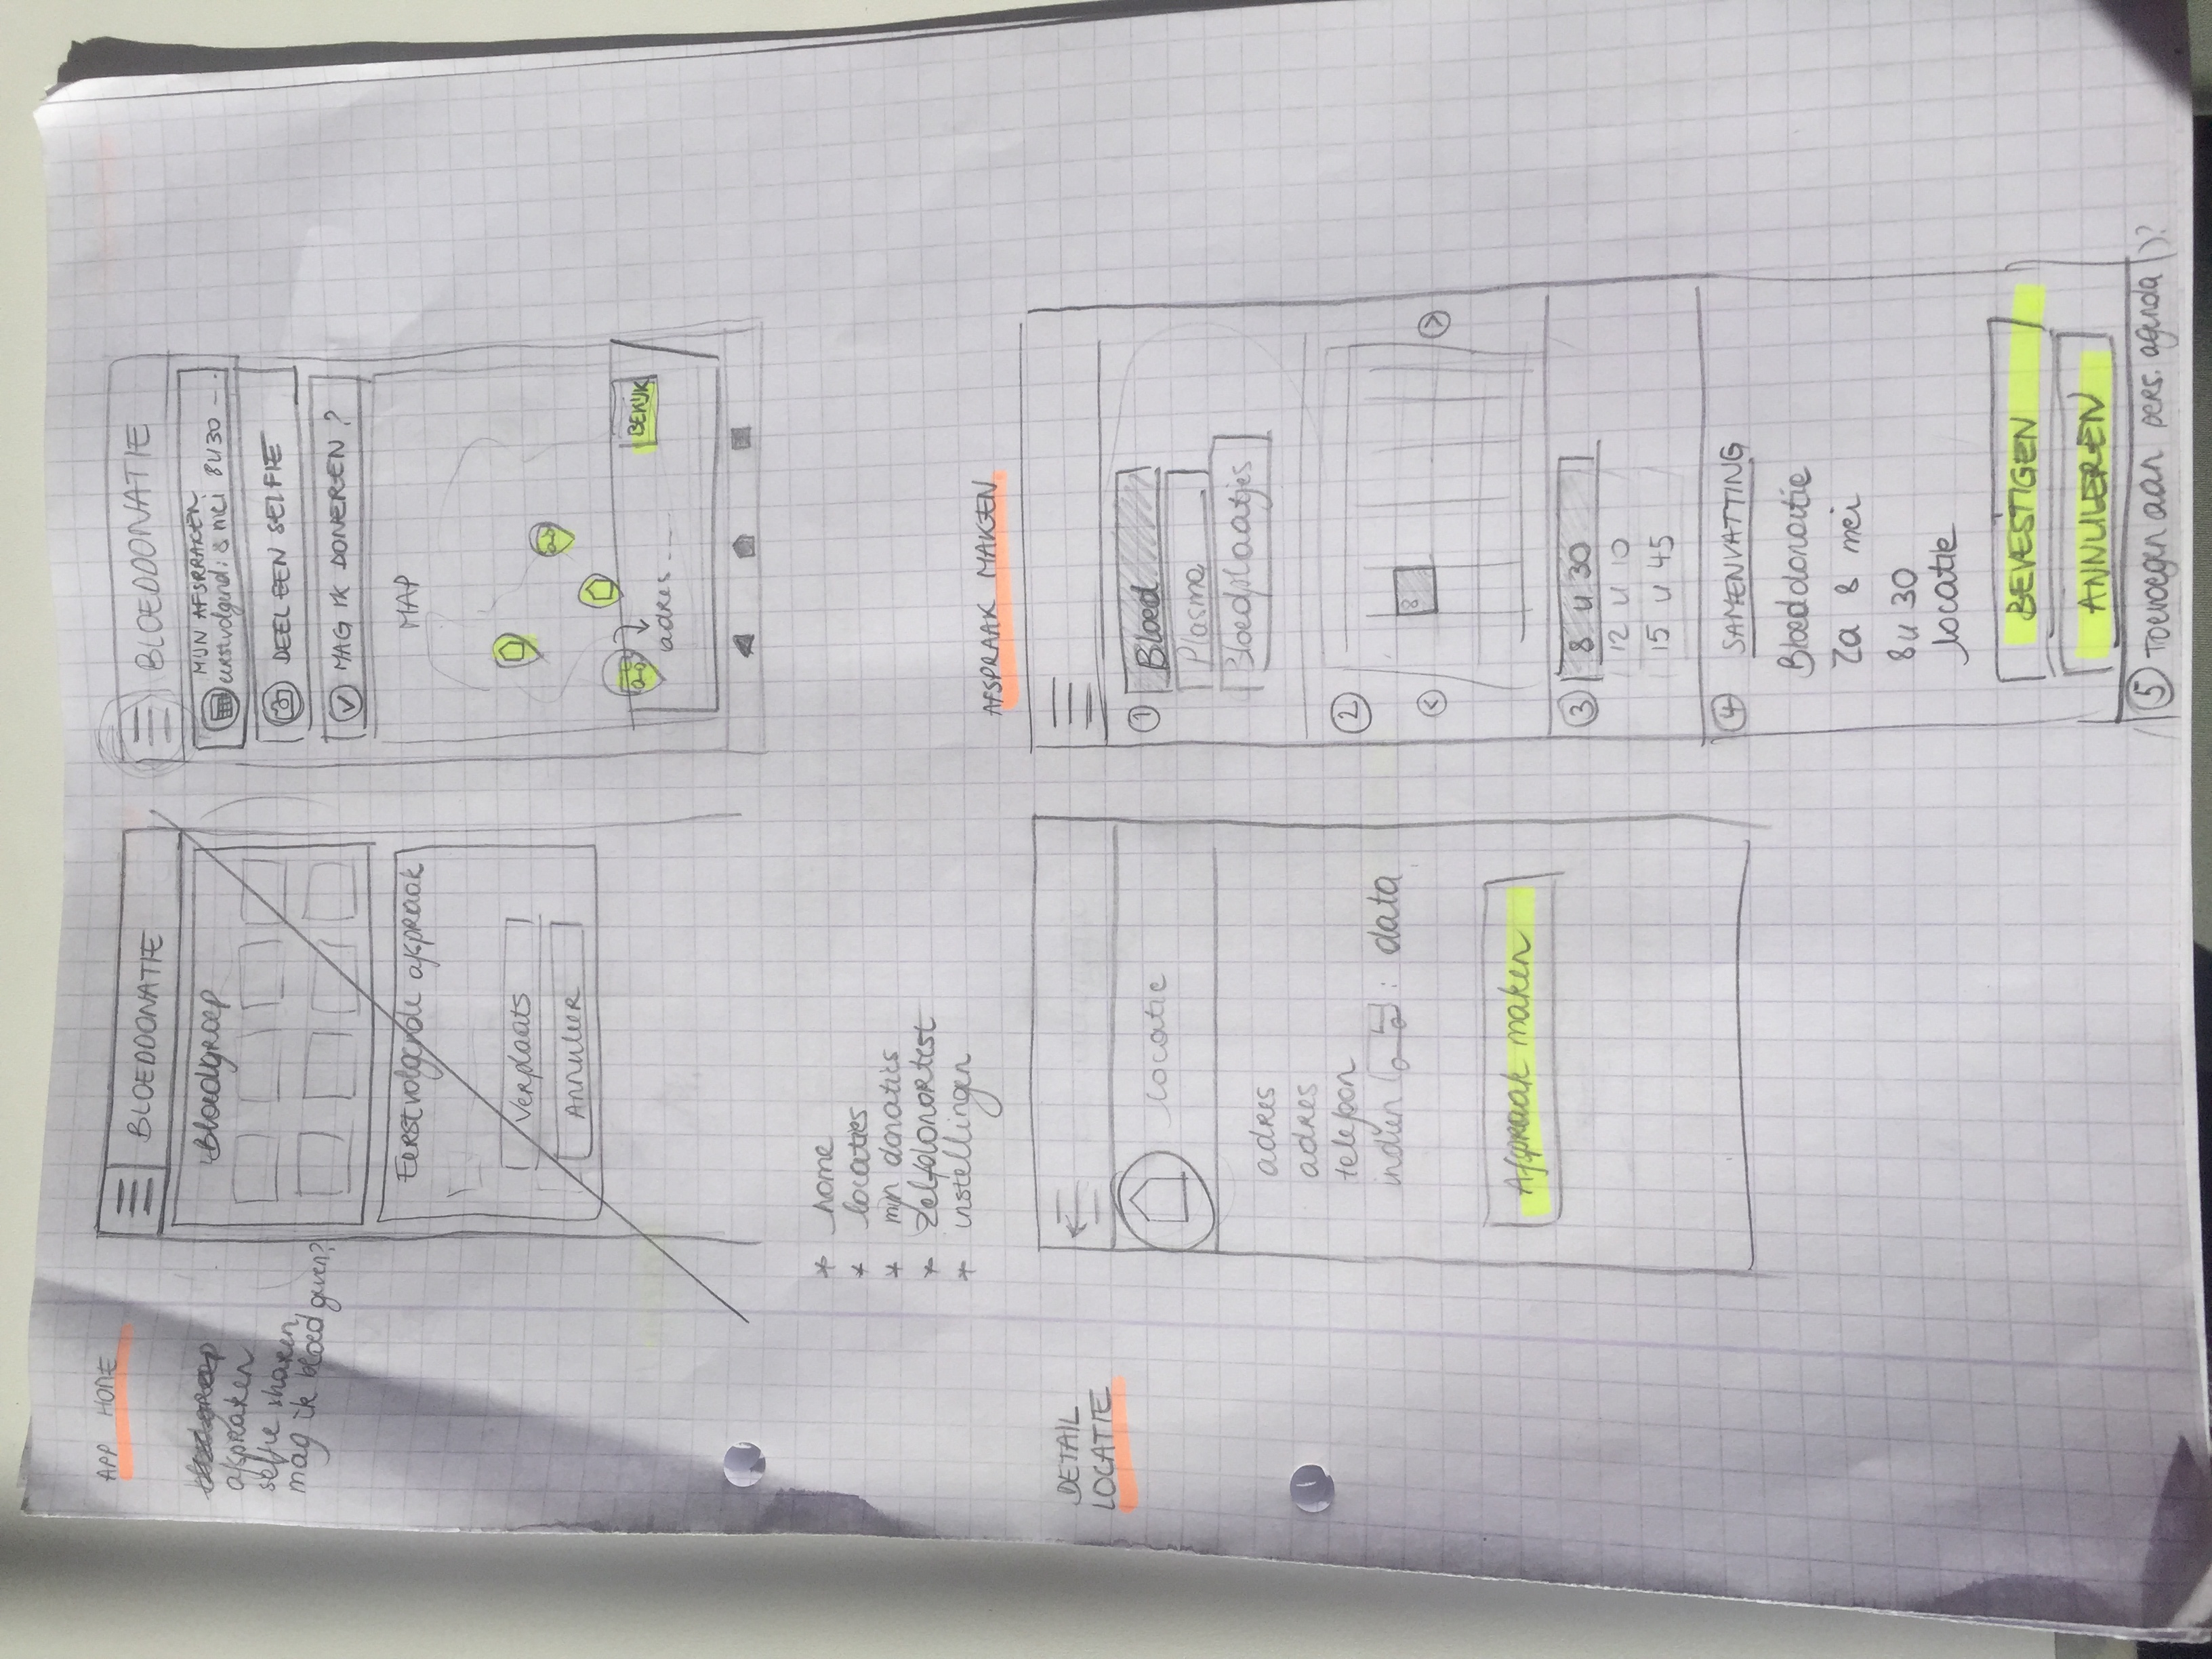 APP HOME
afspraken
selfie sharen
mag ik bloed geven?
BLOEDDONATIE
Bloedgroep
Eerstvolgende afspraak
Verplaats
Annuleer
BLOEDDONATIE
MIJN AFSPRAKEN
eerstvolgend: 8 mei 8u30 ---
DEEL EEN SELFIE
MAG IK DONEREN ?
MAP
BEKIJK
adres ---
* home
* locaties
* mijn donaties
* zelfdonortest
* instellingen
DETAIL
LOCATIE
locatie
adres
adres
telefoon
indien : data
Afspraak maken
AFSPRAAK MAKEN
1 Bloed
Plasma
Bloedplaatjes
2
8
< >
3 8 u 30
12 u 10
15 u 45
4 SAMENVATTING
Bloeddonatie
Za 8 mei
8u 30
locatie
BEVESTIGEN
ANNULEREN
(5 Toevoegen aan pers. agenda )?